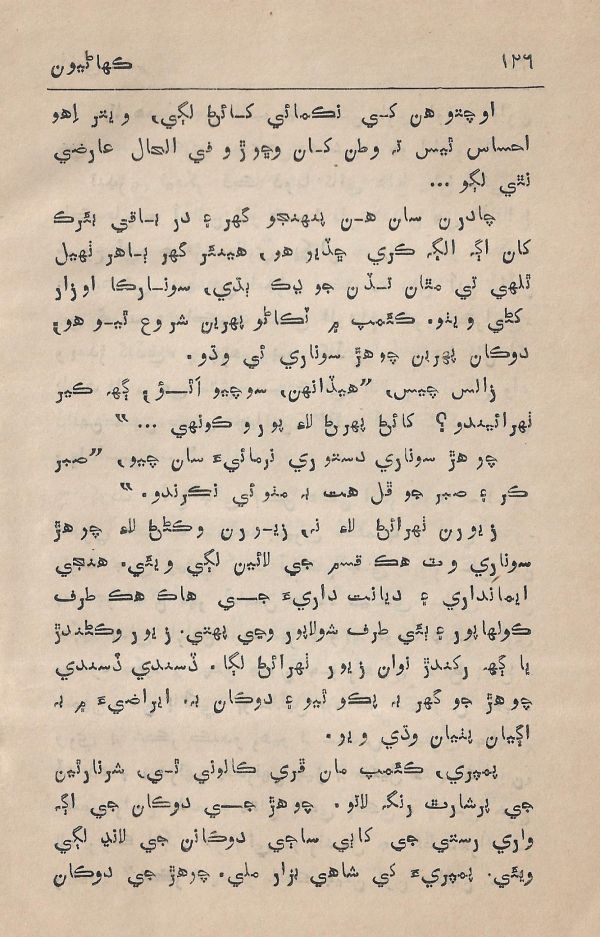 ١٢٦ ڪهاڻيون
اوچتو هن کي نڪمائي کائڻ لڳي، ويتر اِهو
احساس ٿيس تہ وطن کان وڇوڙو في الحال عارضي
نٿي لڳو ...
چادرن سان هن پنهنجو گهر ۽ در باقي بئرڪ
کان اڳ الڳ ڪري ڇڏيو هو، هينئر گهر ٻاهر ٺهيل
ٿلهي تي مٿان ٽڏن جو ڍڪ ٻڌي، سونارڪا اوزار
کڻي ويٺو. ڪئمپ ۾ ٺڪاڻو پهرين شروع ٿيو هو،
دوڪان پهرين چوهڙ سوناري ئي وڌو.
زالس چيس، ”هيڏانهن، سوچيو اٿئو، ڳهہ ڪير
ٺهرائيندو؟ کائڻ پهرڻ لاءِ پورو ڪونهي ... “
چوهڙ سوناري دستوري نرمائيءَ سان چيو، ”صبر
ڪر ۽ صبر جو ڦل هت بہ مٺو ئي نڪرندو. “
زيورن ٺهرائڻ لاءِ نہ، زيورن وڪڻڻ لاءِ چوهڙ
سوناري وٽ هڪ قسم جي لائين لڳي ويئي. هنجي
ايمانداري ۽ ديانت داريءَ جي هاڪ هڪ طرف
ڪولهاپور ۽ ٻئي طرف شولاپور وڃي پهتي. زيور وڪڻندڙ
يا ڳهہ رکندڙ نوان زيور ٺهرائڻ لڳا. ڏسندي ڏسندي
چوهڙ جو گهر بہ پڪو ٿيو ۽ دوڪان بہ. ايراضيءَ ۾ بہ
اڳيان پٺيان وڌي ويو.
پمپري، ڪئمپ مان ڦري ڪالوني ٿي، شرنارٿين
جي پرشارٿ رنگ لاٿو. چوهڙ جي دوڪان جي اڳ
واري رستي جي کاٻي ساڄي دوڪانن جي لانڍ لڳي
ويئي. پمپريءَ کي شاهي بزار ملي. چوهڙ جي دوڪان